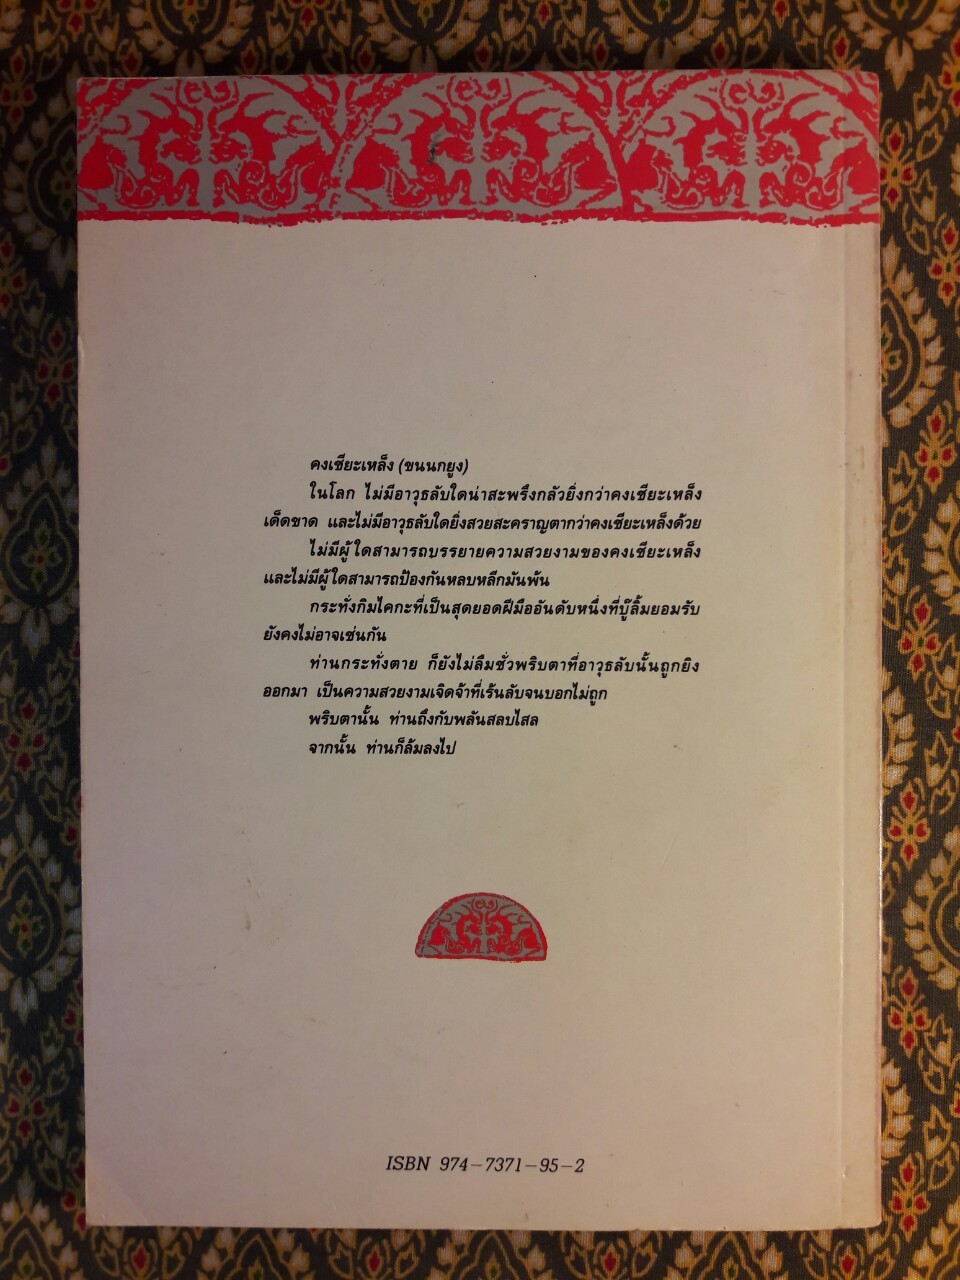 คงเซียะเหล็ง (ขนนกยูง)
ในโลก ไม่มีอาวุธลับใดน่าสะพรึงกลัวยิ่งกว่าคงเซียะเหล็ง
เด็ดขาด และไม่มีอาวุธลับใดยิ่งสวยสะคราญตากว่าคงเซียะเหล็งด้วย
ไม่มีผู้ใดสามารถบรรยายความสวยงามของคงเซียะเหล็ง
และไม่มีผู้ใดสามารถป้องกันหลบหลีกมันพ้น
กระทั่งกิมไคกะที่เป็นสุดยอดฝีมืออันดับหนึ่งที่บู๊ลิ้มยอมรับ
ยังคงไม่อาจเช่นกัน
ท่านกระทั่งตาย ก็ยังไม่ลืมชั่วพริบตาที่อาวุธลับนั้นถูกยิง
ออกมา เป็นความสวยงามเจิดจ้าที่เร้นลับจนบอกไม่ถูก
พริบตานั้น ท่านถึงกับพลันสลบไสล
จากนั้น ท่านก็ล้มลงไป
ISBN 974-7371-95-2